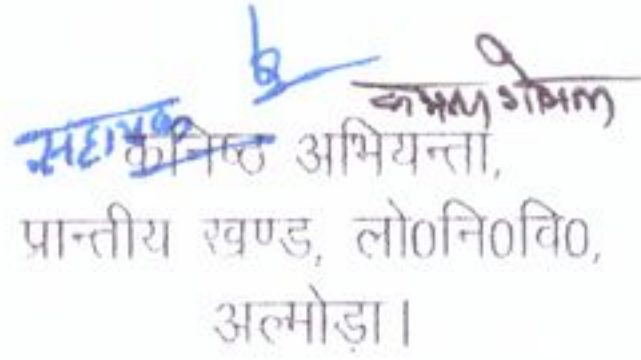 सहायक
कनिष्ठ अभियन्ता,
प्रान्तीय खण्ड, लो0नि0वि0,
अल्मोड़ा।